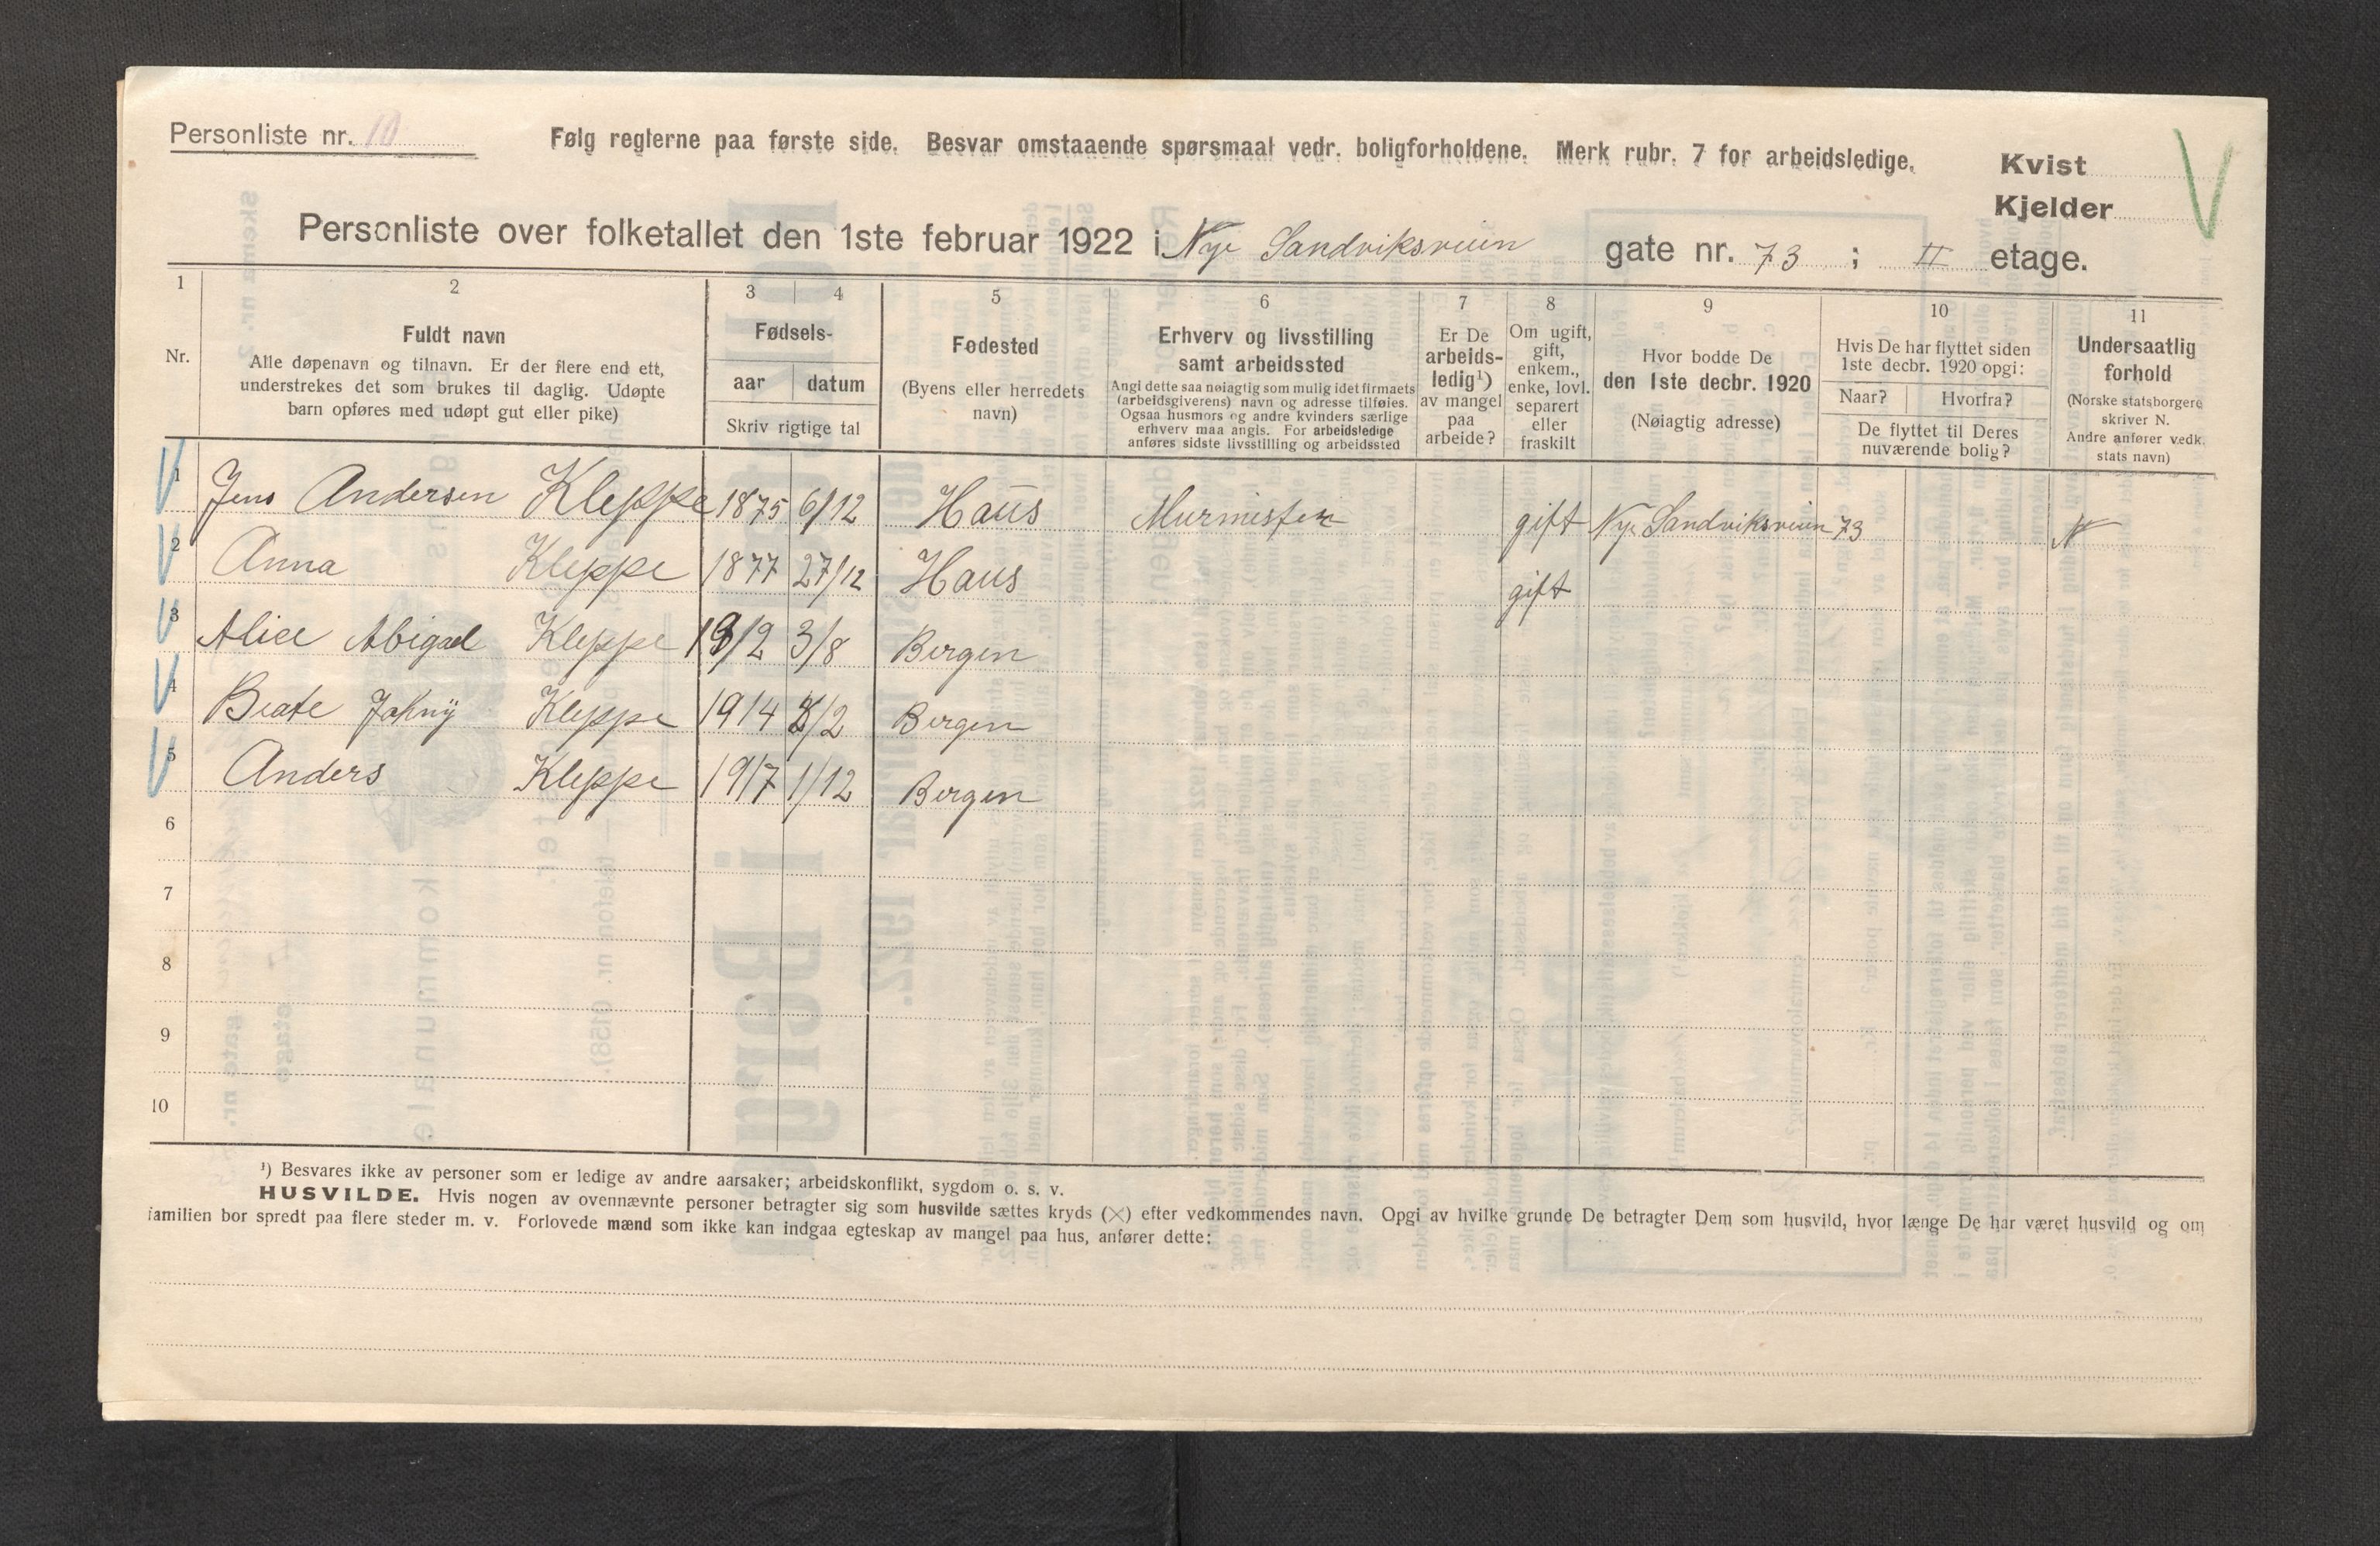 Personliste nr. 10
Følg reglerne paa første side. Besvar omstaaende spørsmaal vedr. boligforholdene. Merk rubr. 7 for arbeidsledige.
Kvist
Kjelder
Personliste over folketallet den 1ste februar 1922 i Nye Sandviksveien gate nr. 73 ; II etage.
1 2 3 4 5 6 7 8 9 10 11
Nr.
Fuldt navn
Alle døpenavn og tilnavn. Er der flere end ett,
understrekes det som brukes til daglig. Udøpte
barn opføres med udøpt gut eller pike)
Fødsels-
aar datum
Skriv rigtige tal
Fødested
(Byens eller herredets
navn)
Erhverv og livsstilling
samt arbeidssted
Angi dette saa nøiagtig som mulig idet firmaets
(arbeidsgiverens) navn og adresse tilføies.
Ogsaa husmors og andre kvinders særlige
erhverv maa angis. For arbeidsledige
anføres sidste livsstilling og arbeidssted
Er De
arbeids-
ledig¹)
av mangel
paa
arbeide?
Om ugift,
gift,
enkem.,
enke, lovl.
separert
eller
fraskilt
Hvor bodde De
den 1ste decbr. 1920
(Nøiagtig adresse)
Hvis De har flyttet siden
1ste decbr. 1920 opgi:
Naar? Hvorfra?
De flyttet til Deres
nuværende bolig?
Undersaatlig
forhold
(Norske statsborgere
skriver N.
Andre anfører vedk.
stats navn)
1 Jens Andersen Kleppe 1875 6/12 Haus Murmester gift Nye Sandviksveien 73 N
2 Anna Kleppe 1877 27/12 Haus gift
3 Alice Abigael Kleppe 1912 3/8 Bergen
4 Beate Kleppe 1914 /2 Bergen
5 Anders Kleppe 1917 1/12 Bergen
6
7
8
9
10
¹) Besvares ikke av personer som er ledige av andre aarsaker; arbeidskonflikt, sygdom o. s. v.
HUSVILDE. Hvis nogen av ovennævnte personer betragter sig som husvilde sættes kryds (×) efter vedkommendes navn. Opgi av hvilke grunde De betragter Dem som husvild, hvor længe De har været husvild og om
familien bor spredt paa flere steder m. v. Forlovede mænd som ikke kan indgaa egteskap av mangel paa hus, anfører dette: